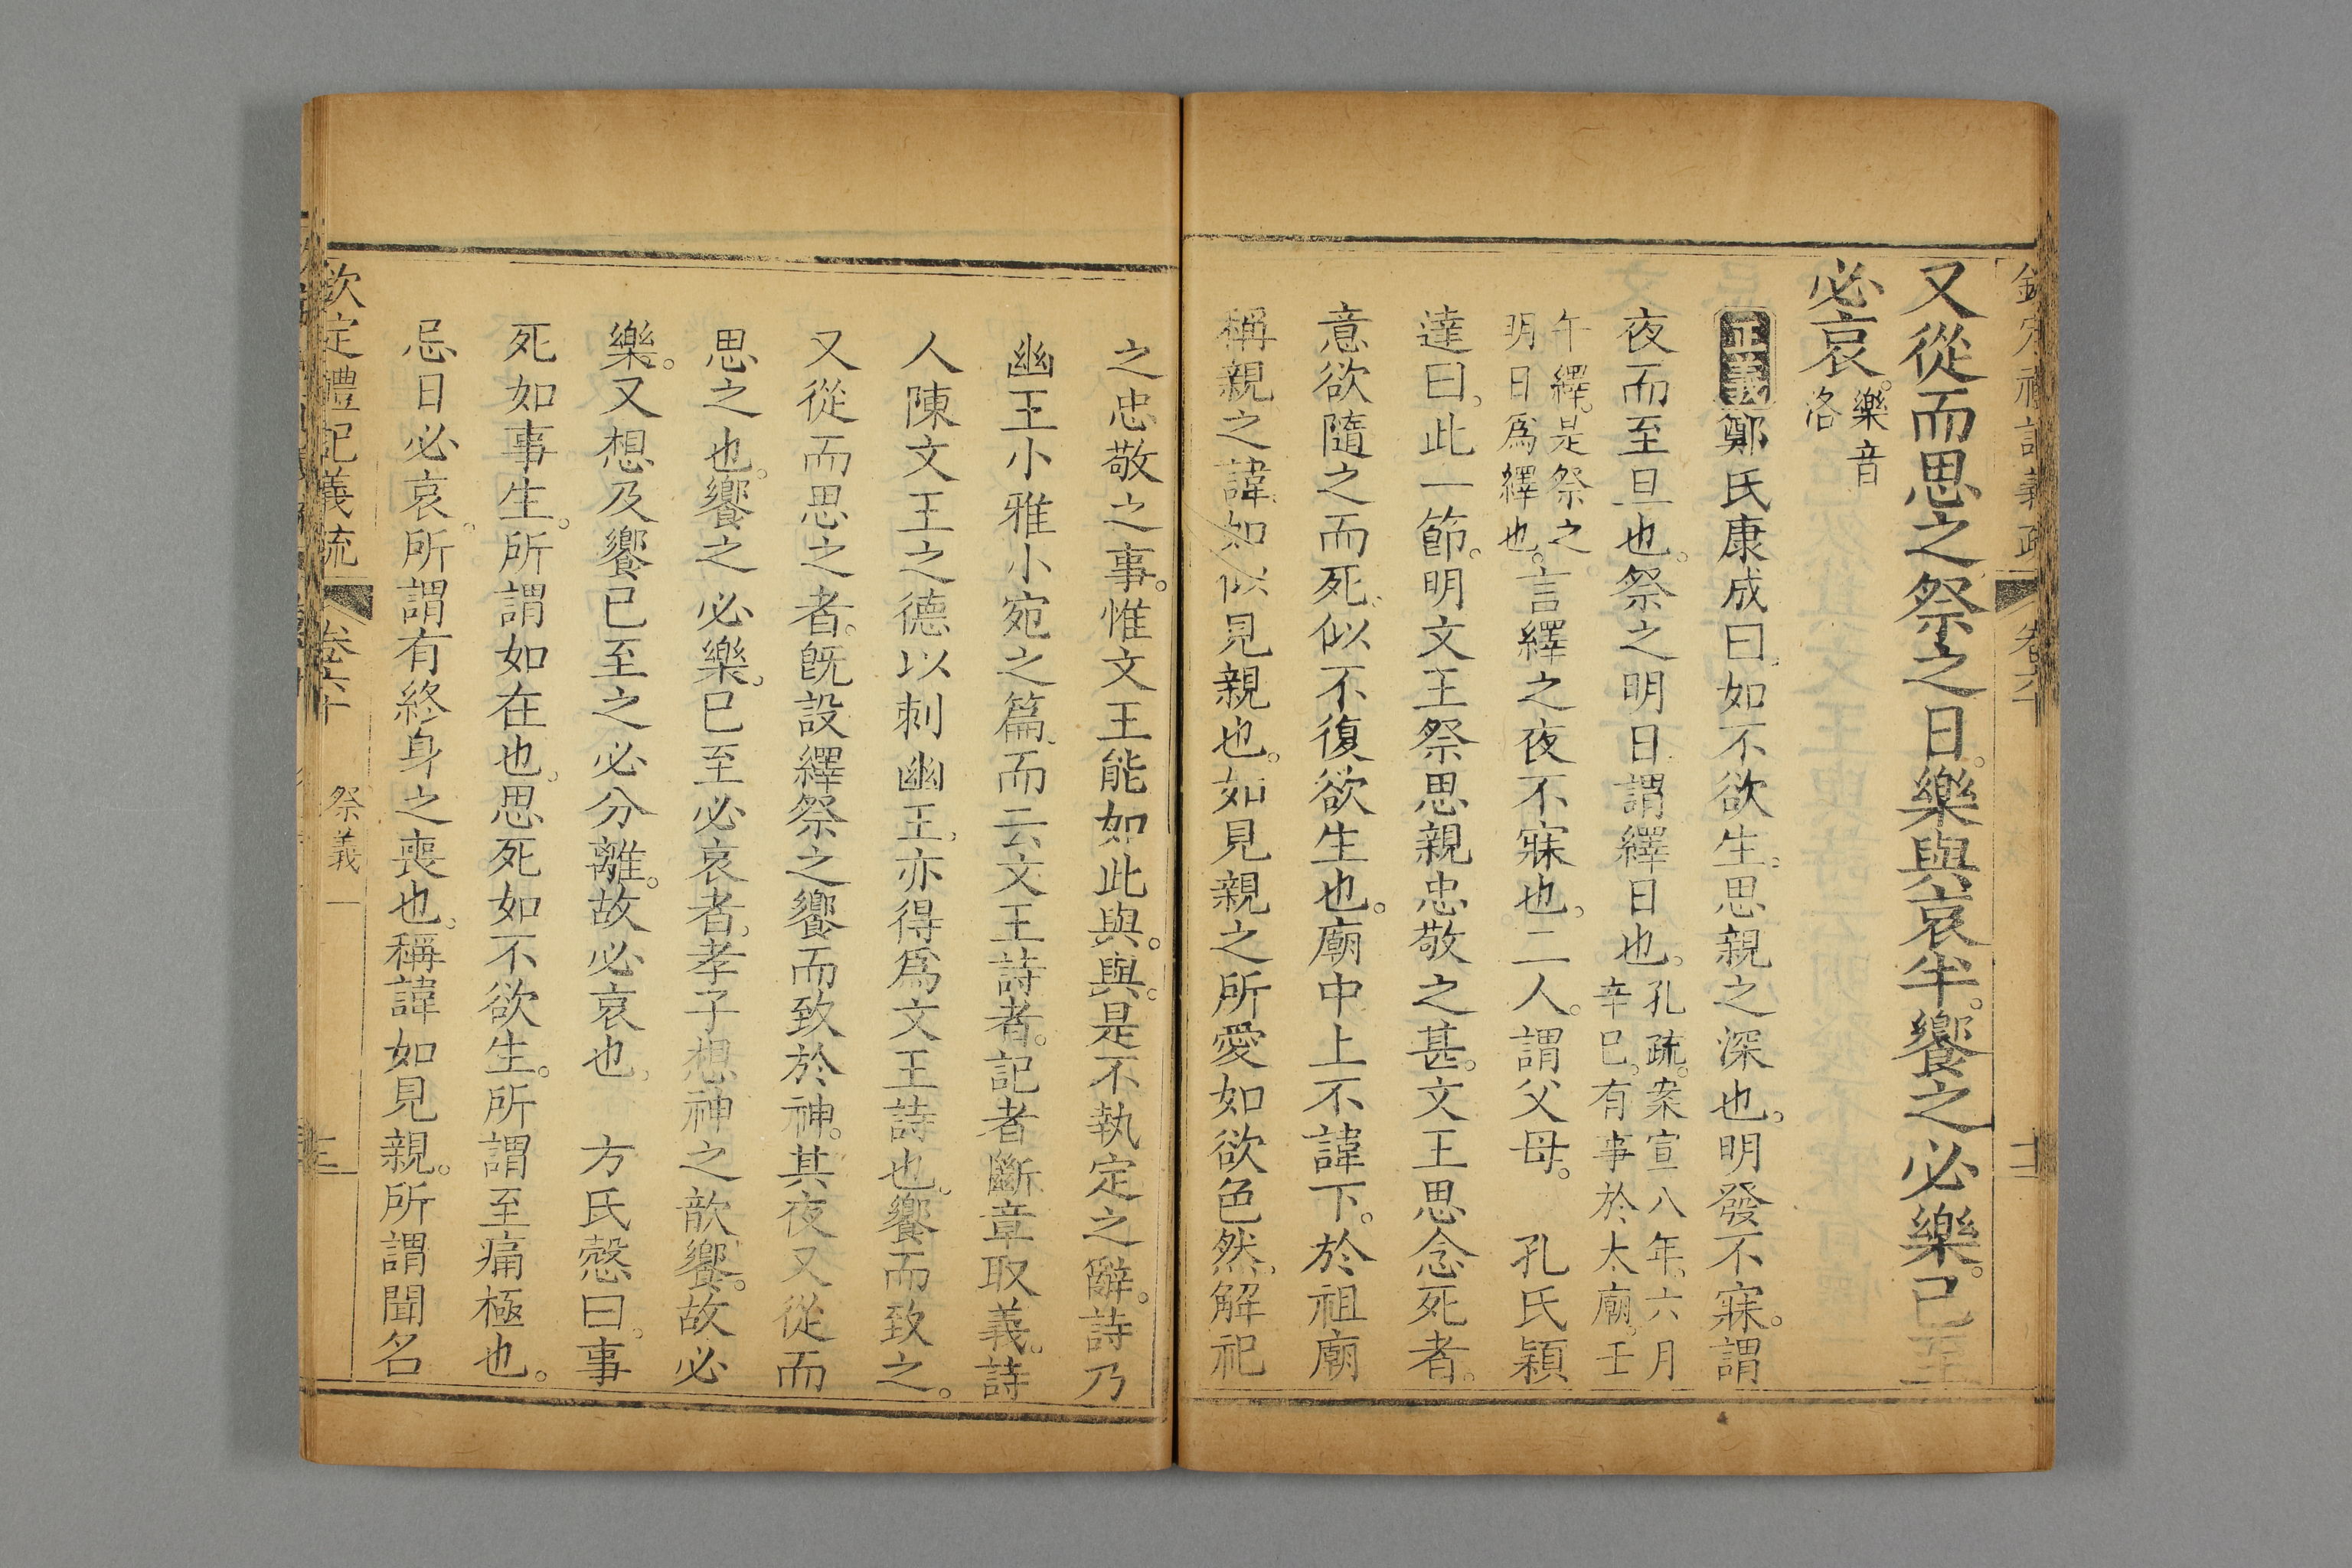 又從而思之祭之日。樂與哀半。饗之必樂。已至
必哀。樂音
洛
正義鄭氏康成曰、如不欲生。思親之深也。明發不寐。謂
夜而至旦也。祭之明日、謂繹日也。孔疏。案宣八年、六月
辛巳、有事於太廟。壬
午繹。是祭之
明日爲繹也。言繹之夜不寐也。二人。謂父母。　孔氏穎
達曰、此一節。明文王祭思親忠敬之甚。文王思念死者。
意欲隨之而死、似不復欲生也。廟中上不諱下。於祖廟
稱親之諱、如似見親也。如見親之所愛如欲色然、解祀
之忠敬之事。惟文王能如此與。與。是不執定之辭。詩乃
幽王小雅小宛之篇、而云文王詩者。記者斷章取義。詩
人陳文王之德以刺幽王、亦得爲文王詩也。饗而致之。
又從而思之者。旣設繹祭之饗而致於神。其夜又從而
思之也。饗之必樂、已至必哀者、孝子想神之歆饗。故必
樂。又想及饗已至之必分離。故必哀也、　方氏慤曰。事
死如事生。所謂如在也、思死如不欲生。所謂至痛極也。
忌日必哀。所謂有終身之喪也、稱諱如見親。所謂聞名
欽定禮記義疏　卷六十　祭義一